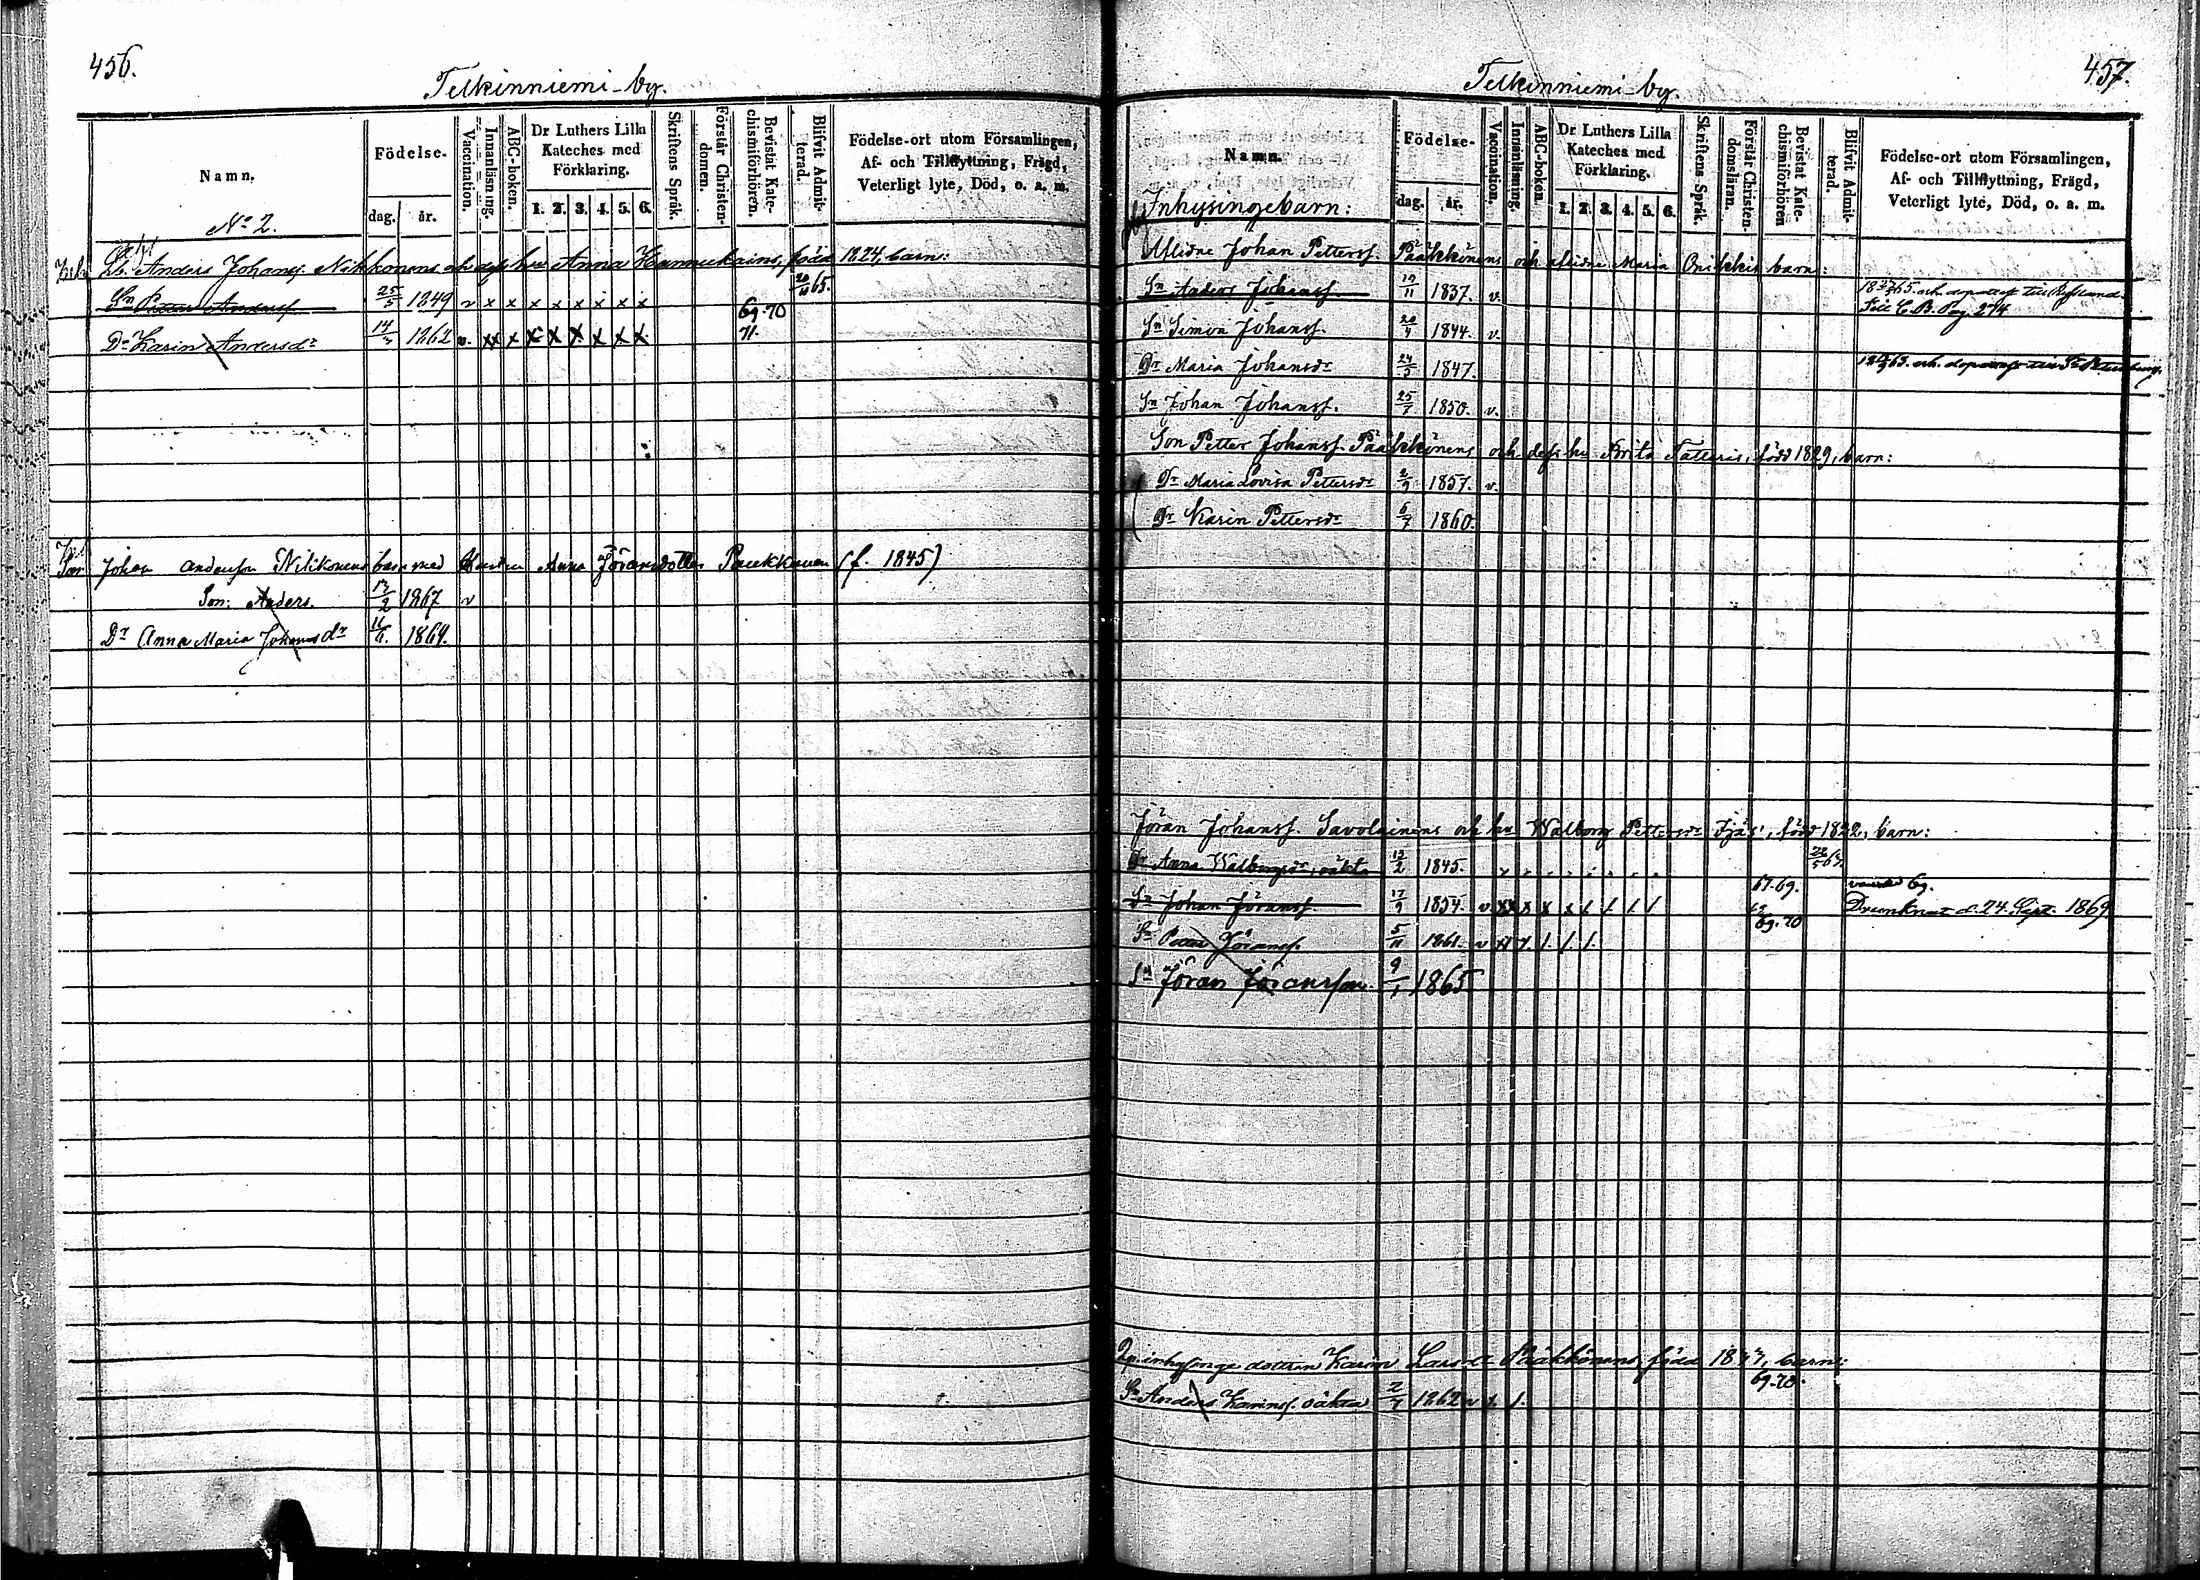 456.
Telkinniemi by.
Namn.
Födelse.
dag. år.
Vaccination.
Innanläsning.
ABC-boken.
Dr Luthers Lilla Kateches med Förklaring.
1. 2. 3. 4. 5. 6.
Skriftens Språk.
Förstår Christen-domen.
Bevistat Kate-chismiförhören.
Blifvit Admit-terad.
Födelse-ort utom Församlingen,
Af- och Tillflyttning, Frägd,
Veterligt lyte, Död, o. a. m.
No 2.
Anders Johansf. Nikkonens och dess hu Anna Hannukains, född 1824, barn:
Sn Petter Andersf. 25/5 1849 v x x x x x x x x 69.70
Dr Karin Andersdr 14/ 1862 v. xx x x x x x x x 71.
Son Johan Andersson Nikkonens barn med Hustru Anna Jöransdotter Paukkunen (f. 1845)
Son: Anders. 13/2 1867 v
Dr Anna Maria Johansdr 1869.
457.
Telkinniemi by.
Namn.
Födelse-
dag. år.
Vaccination.
Innanläsning.
ABC-boken.
Dr Luthers Lilla Kateches med Förklaring.
1. 2. 3. 4. 5. 6.
Skriftens Språk.
Förstår Christen-domsläran.
Bevistat Kate-chismiförhören
Blifvit Admit-terad.
Födelse-ort utom Församlingen,
Af- och Tillflyttning, Frägd,
Veterligt lyte, Död, o. a. m.
Inhysingebarn:
Aflidne Johan Pettersf. Pääkkönens och aflidne Maria barn:
Sn Anders Johansf. 19/11 1837. v.
C. B. Pag. 274
Sn Simon Johansf. 1844. v.
Dr Maria Johansdr 24/5 1847.
Sn Johan Johansf. 25/7 1850. v.
Son Petter Johansf. Pääkkönens och dess hu Brita Tattaris, född 1829, barn:
Dr Maria Lovisa Pettersdr 2/9 1857. v.
Dr Karin Pettersdr 6/7 1860.
Jöran Johansf. Savolainens och hu Walborg Pettersdr född 1822, barn:
Dr Anna Walborgsdr, oäkta 13/2 1845.
67.69.
Sn Johan Jöransf. 17/9 1854. v Drunknat d. 24. Sept. 1869
69.70
Sn Petter Jöransf. 5/11 1861. v
Sn Jöran Jöransson. 9/1 1865
inhysinge dottren Karin Larsdr Pääkkönens, född barn:
69.70.
Sn Anders Karinsf. oäkta 2/7 1862 v